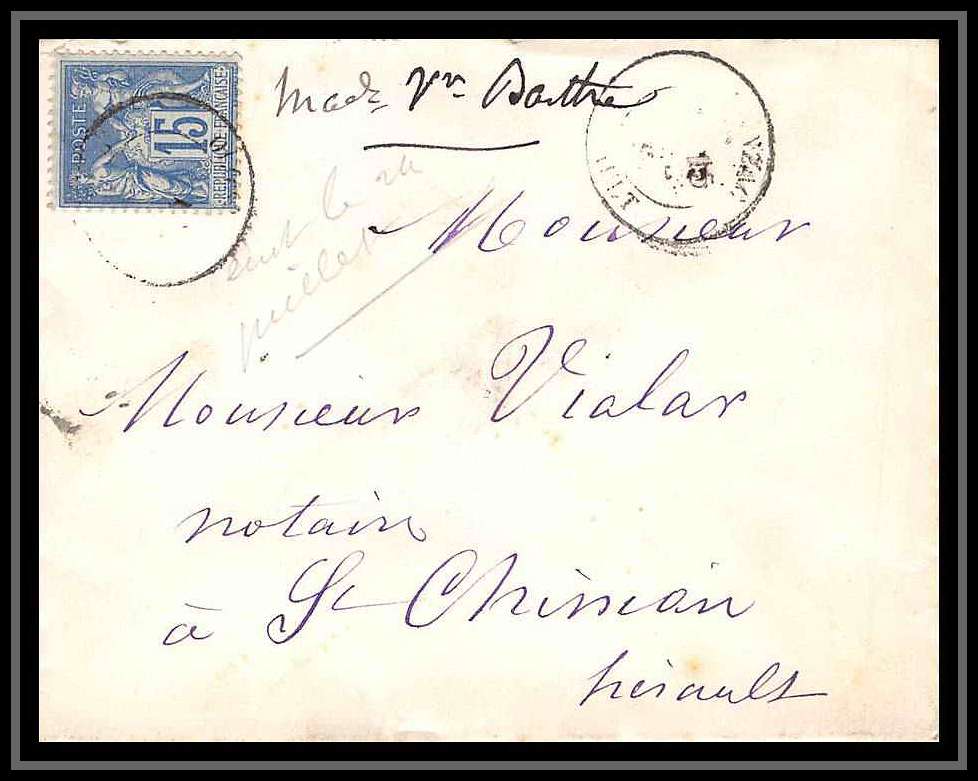 POSTE
15
REPUBLIQUE FRANÇAISE
Made Vve Barthe
Monsieur
Monsieur Vialar
notaire
à St Chinian
hérault